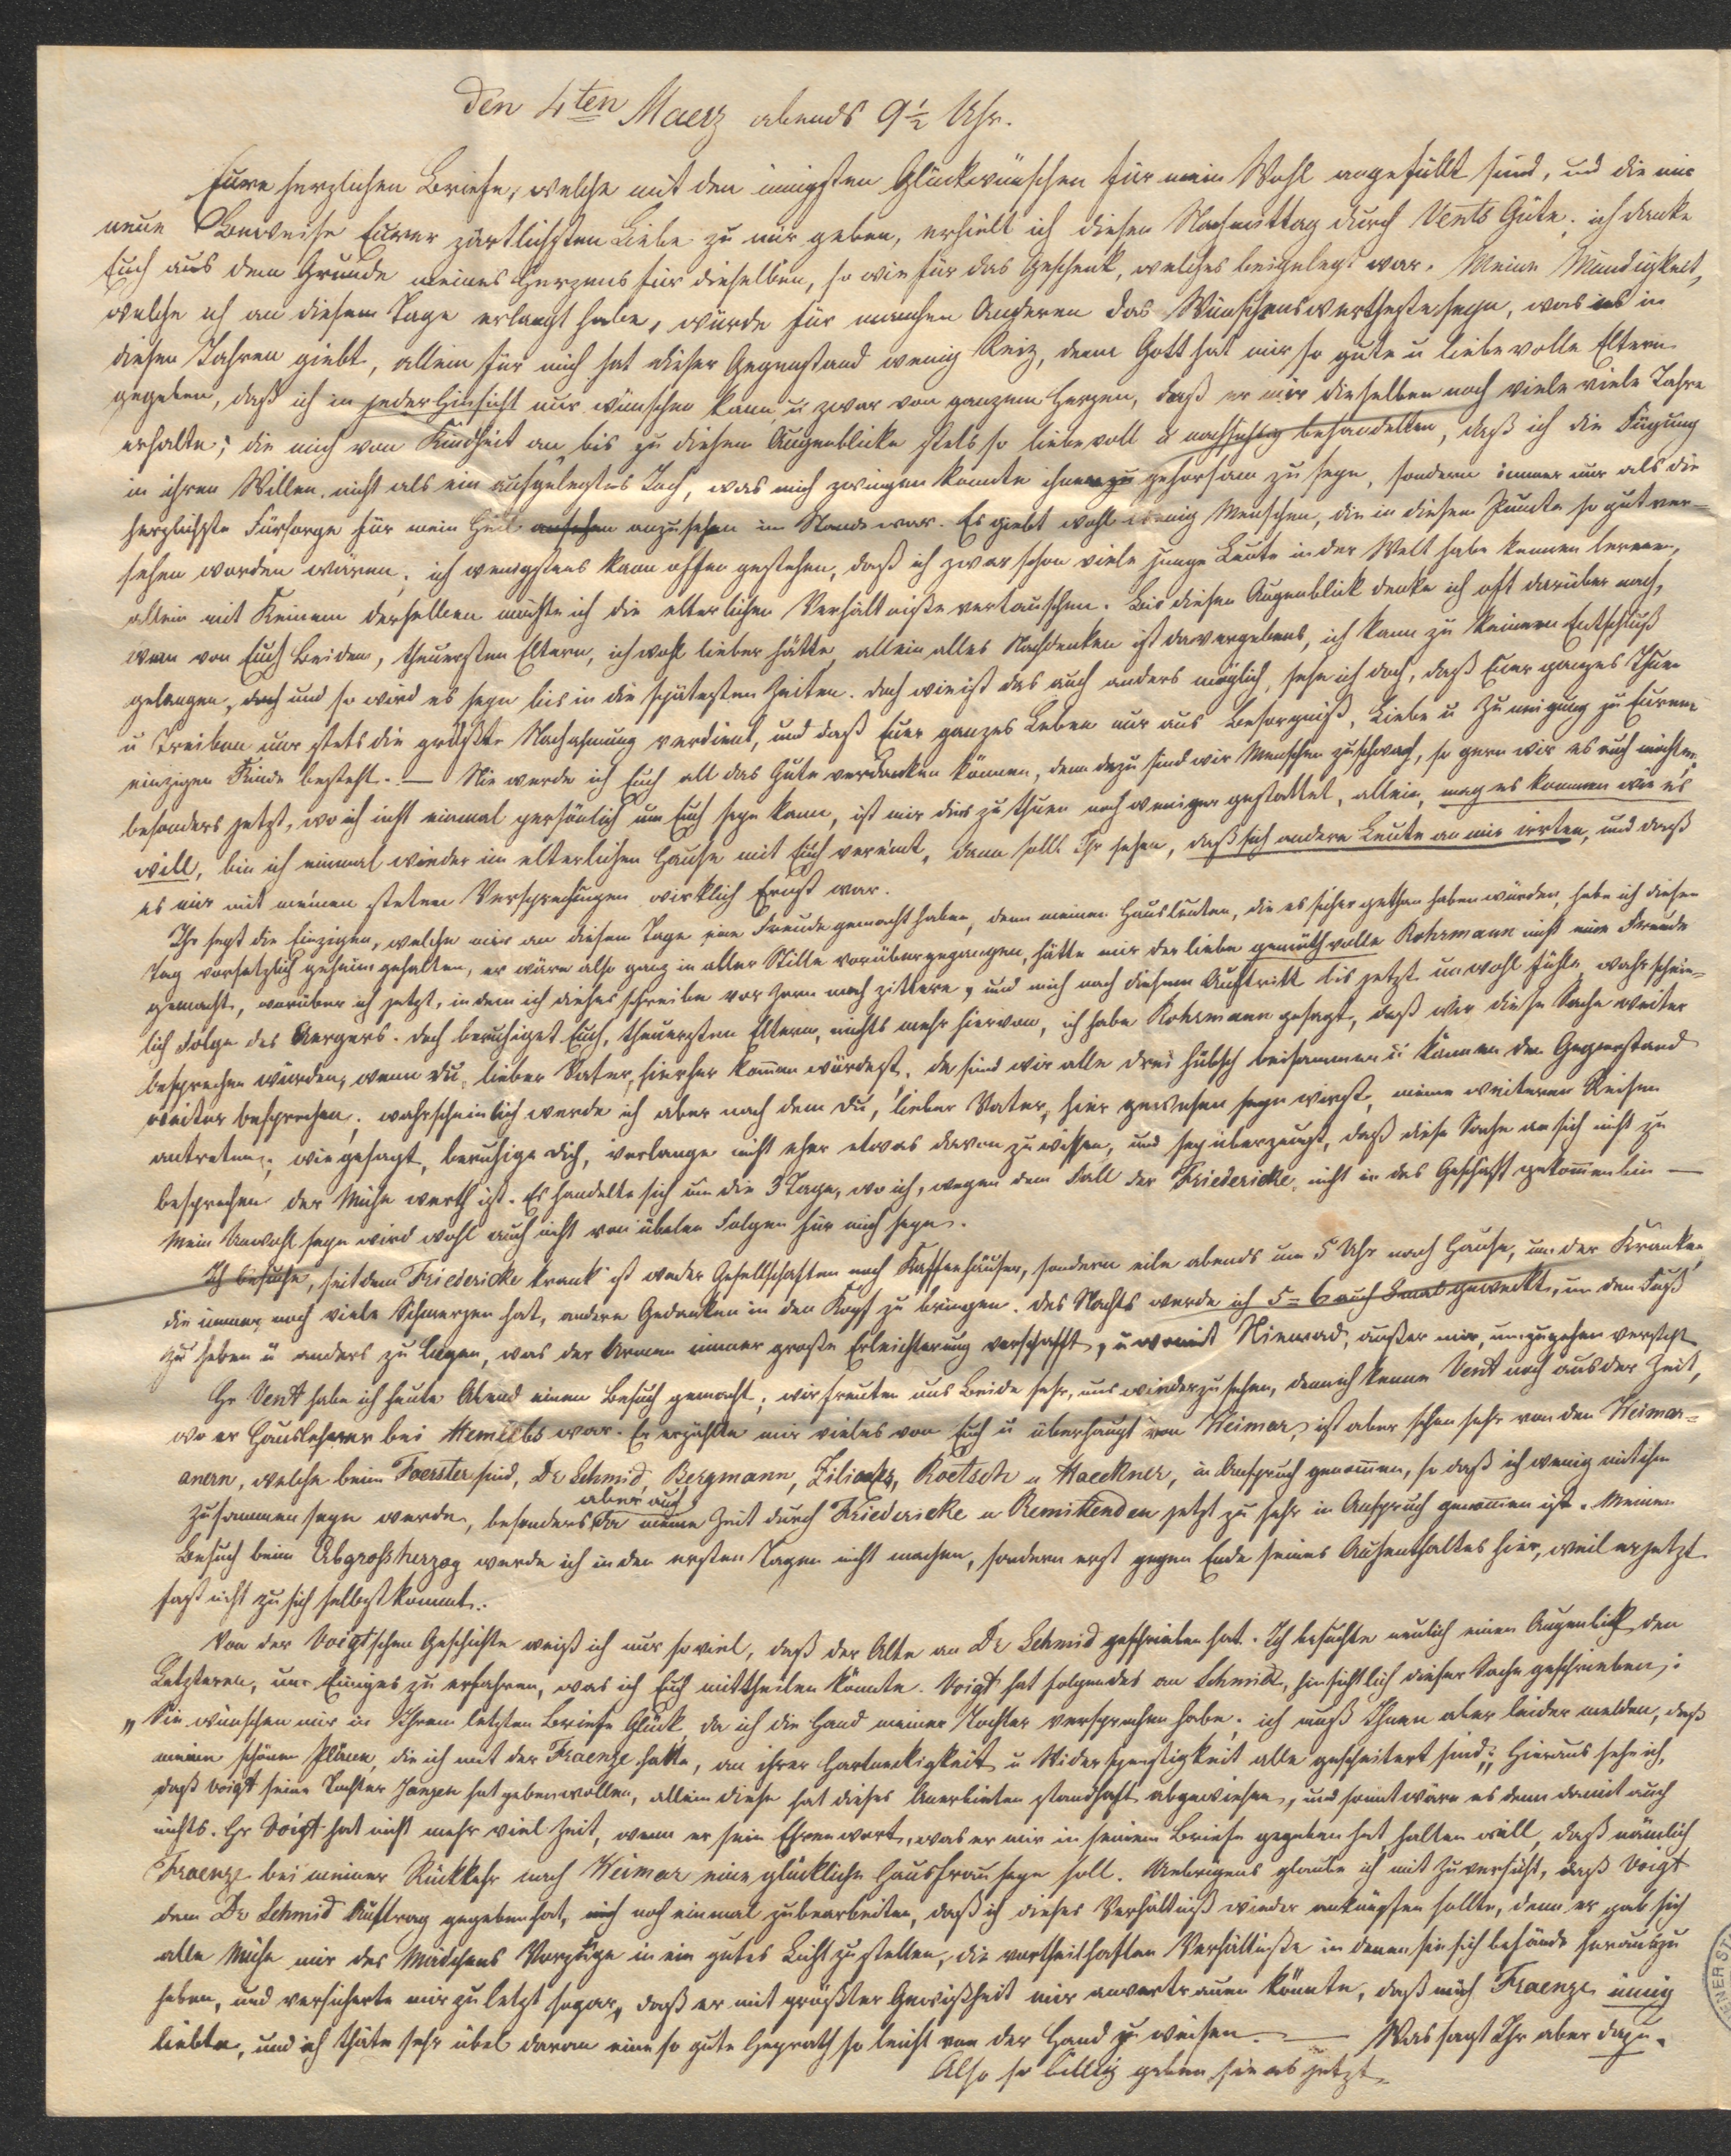 Den 4ten Maerz abends 9½ Uhr.
Eure herzlichen Briefe, welche mit den innigsten Glückwünschen für mein Wohl angefüllt sind, und die mir
neue Beweise Eurer zärtlichsten Liebe zu mir geben, erhielt ich diesen Nachmittag durch Vents Güte; ich danke
Euch aus dem Grunde meines Herzens für dieselben, so wie für das Geschenk, welches beigelegt war. Meine Mündigkeit,
welche ich an diesem Tage erlangt habe, würde für manchen Anderen das Wünschenswertheste seyn, was es in
diesen Jahren giebt, allein für mich hat dieser Gegenstand wenig Reiz, denn Gott hat mir so gute u liebevolle Eltern
gegeben, daß ich in jeder Hinsicht nur wünschen kann u zwar von ganzem Herzen, daß er mir dieselben noch viele viele Jahre
erhalte; die mich von Kindheit an bis zu diesem Augenblicke stets so liebevoll u nachsichtig behandelten, daß ich die Fügung
in ihren Willen nicht als ein aufgelegtes Joch, was mich zwingen konnte ihnen zu gehorsam zu seyn, sondern immer nur als die
herzlichste Fürsorge für mein Heil ansehen anzusehen im Stande war. Es giebt wohl wenig Menschen, die in diesem Puncte so gut ver-
sehen worden wären; ich wenigstens kann offen gestehen, daß ich zwar schon viele junge Leute in der Welt habe kennen lernen,
allein mit Keinem derselben möchte ich die elterlichen Verhältniße vertauschen. Bis diesen Augenblick denke ich oft darüber nach,
wen von Euch Beiden, theuersten Eltern, ich wohl lieber hätte, allein alles Nachdenken ist da vergebens, ich kann zu keinem Entschluß
gelangen, doch und so wird es seyn bis in die spätesten Zeiten. Doch wie ist das auch anders möglich, sehe ich doch, daß Euer ganzes Thun
u Treiben nur stets die größte Nachahmung verdient, und daß Euer ganzes Leben nur aus Besorgniß, Liebe u Zuneigung zu Eurem
einzigen Kinde besteht. — Nie werde ich Euch all das Gute verdanken können, denn dazu sind wir Menschen zu schwach, so gern wir es auch möchten,
besonders jetzt, wo ich nicht einmal persönlich um Euch seyn kann, ist mir dies zu thuen noch weniger gestattet, allein, mag es kommen wie es
will, bin ich einmal wieder im elterlichen Hause mit Euch vereint, dann sollt Ihr sehen, daß sich andere Leute an mir irrten, und daß
es mir mit meinen steten Versprechungen wirklich Ernst war.
Ihr seyt die Einzigen, welche mir an diesem Tage eine Freude gemacht haben, denn meinen Hausleuten, die es sicher gethan haben würden, habe ich diesen
Tag vorsetzlich geheim gehalten, er wäre also ganz in aller Stille vorübergegangen, hätte mir der liebe gemüthvolle Rohrmann nicht eine Freude
gemacht, worüber ich jetzt, indem ich dieses schreibe vor Zorn noch zittere, und mich nach diesem Auftritt bis jetzt unwohl fühle, wahrschein-
lich Folge des Aergers. Doch beruhiget Euch, theuersten Eltern, nichts mehr hiervon, ich habe Rohrmann gesagt, daß wir diese Sache weiter
besprechen würden, wenn du, lieber Vater, hierher kommen würdest, da sind wir alle drei hübsch beisammen u können den Gegenstand
weiter besprechen; wahrscheinlich werde ich aber nach dem du, lieber Vater, hier gewesen seyn wirst, meine weiteren Reisen
antreten; wie gesagt, beruhige dich, verlange nicht eher etwas davon zu wissen, und sey überzeugt, daß diese Sache an sich nicht zu
besprechen der Mühe werth ist. Es handelte sich um die 3 Tage, wo ich, wegen dem Fall der Friedericke, nicht in das Geschäft gekommen bin —
Mein Unwohlseyn wird wohl auch nicht von übelen Folgen für mich seyn.
Ich besuche, seitdem Friedericke krank ist weder Gesellschaften noch Kaffeehäuser, sondern eile abends um 5 Uhr nach Hause, um der Kranken,
die immer noch viele Schmerzen hat, andere Gedanken in den Kopf zu bringen. Des Nachts werde ich 5-6 auch 8 mal geweckt, um den Fuß
zu heben u anders zu legen, was der Armen immer große Erleichterung verschafft, u womit Niemand, außer mir, umzugehen versteht.
Hr Vent habe ich heute Abend einen Besuch gemacht; wir freuten uns Beide sehr, uns wiederzusehen, denn ich kenne Vent noch aus der Zeit,
wo er Hauslehrer bei Hemlebs war. Er erzählte mir vieles von Euch u überhaupt von Weimar, ist aber schon sehr von den Weimar-
anern, welche beim Foerster sind, Dr Schmid, Bergmann, Roetsch u Haeckner, in Anspruch genommen, so daß ich wenig mit ihm
zusammen seyn werde, besonders da aber auch meine Zeit durch Friedericke u Remittenden jetzt zu sehr in Anspruch genommen ist. Meinen
Besuch beim Erbgroßherzog werde ich in den ersten Tagen nicht machen, sondern erst gegen Ende seines Aufenthaltes hier, weil er jetzt
fast nicht zu sich selbst kommt.
Von der Voigtschen Geschichte weiß ich nur soviel, daß der Alte an Dr Schmid geschrieben hat. Ich besuchte neulich einen Augenblick den
Letzteren, um Einiges zu erfahren, was ich Euch mittheilen könnte. Voigt hat folgendes an Schmid, hinsichtlich dieser Sache geschrieben:
„Sie wünschen mir in Ihrem letzten Briefe Glück, da ich die Hand meiner Tochter versprochen habe; ich muß Ihnen aber leider melden, daß
meine schönen Pläne, die ich mit der Fraenze hatte, an ihrer Hartneckigkeit u Widerspenstigkeit alle gescheitert sind;" Hieraus sehe ich,
daß Voigt seine Tochter Jansen hat geben wollen, allein diese hat dieses Anerbieten standhaft abgewiesen, und somit wäre es denn damit auch
nichts. Hr Voigt hat nicht mehr viel Zeit, wenn er sein Ehrenwort, was er mir in seinem Briefe gegeben hat halten will, daß nämlich
Fraenze bei meiner Rückkehr nach Weimar eine glückliche Hausfrau seyn soll. Uebrigens glaube ich mit Zuversicht, daß Voigt
dem Dr Schmid Auftrag gegeben hat, mich noch einmal zu bearbeiten, daß ich dieses Verhältniß wieder anknüpfen sollte, denn er gab sich
alle Mühe mir des Mädchens Vorzüge in ein gutes Licht zu stellen, die vortheilhaften Verhältniße in denen sie sich befände herauszu
heben, und versicherte mir zuletzt sogar, daß er mit größter Gewißheit mir anvertrauen könnte, daß mich Fraenze innig
liebte, und ich thäte sehr übel daran eine so gute Heyrath so leicht von der Hand zu weisen. — Was sagt Ihr aber dazu.
Also so billig geben sie es jetzt.